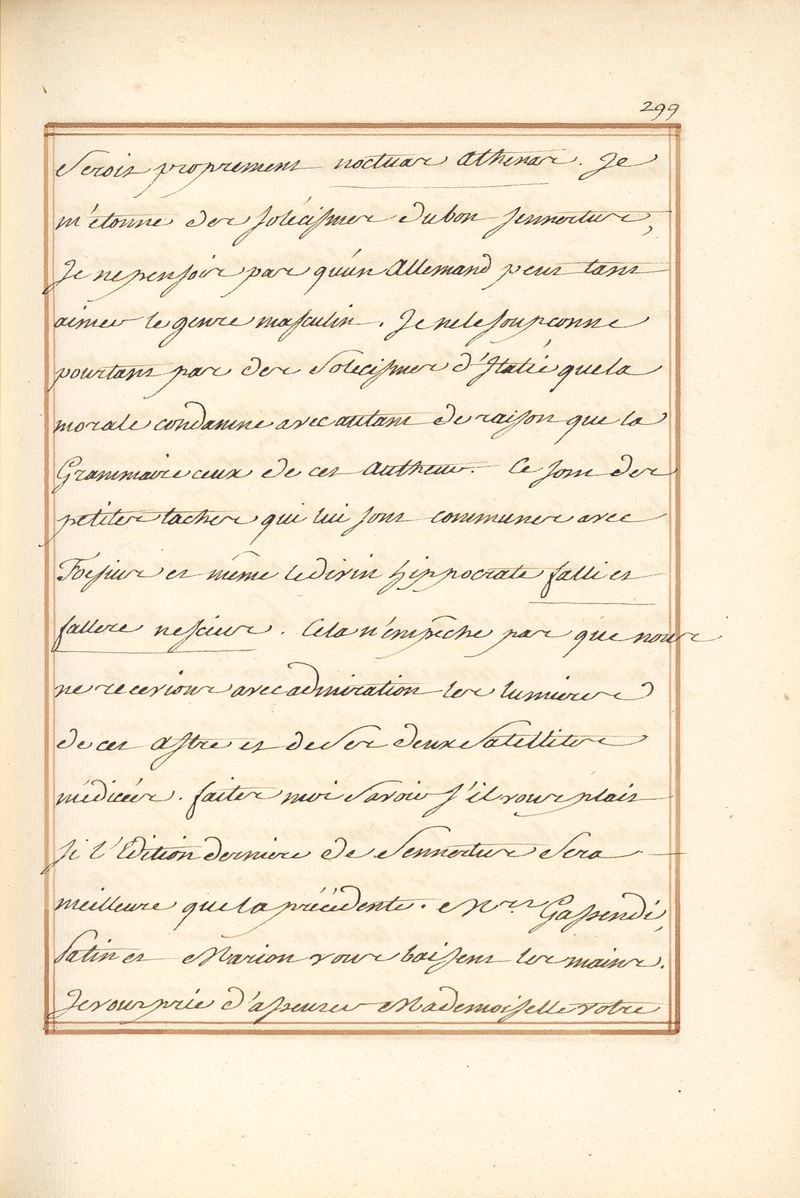 299
Serois proprement noctuas Athenas. Je
m'étonne des solécismes du bon Sennertus,
Je ne pensois pas qu'un Allemand peust tant
aimer le genre masculin. Je ne le soupçonne
pourtant pas des Solecismes d'Italie que la
morale condamne avec autant de raison que la
Grammaire ceux de cet Autheur. Ce sont des
petites taches qui lui sont communes avec
Foesius et même le divin hippocrate falli et
fallere nescius. Cela n'empêche pas que nous
ne recevions avec admiration les lumieres
de cet Astre et de Ses deux Satellites
médicées. faites moi Savoir s'il vous plait
si l'Edition derniere de Sennertus Sera
meilleure que la précédente. Mrs. Gassendi,
Patin et Marion vous baisent les mains.
Je vous prie d'asseurer Mademoiselle votre